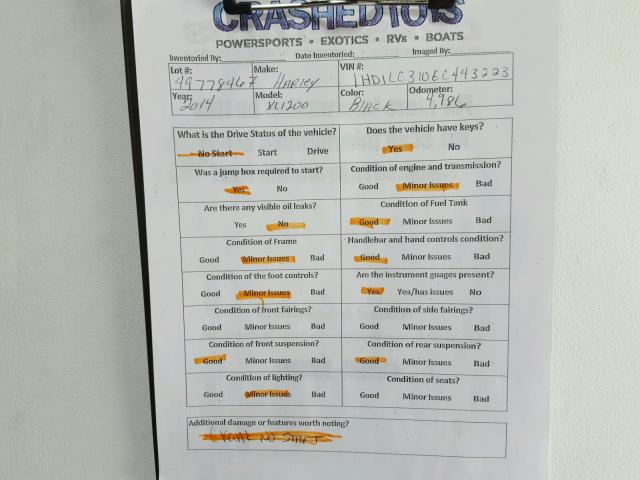 CRASHEDTOYS
POWERSPORTS • EXOTICS • RVs • BOATS
Inventoried By: Date Inventoried: Imaged By:
Lot #: Make: VIN #:
49778467 HARLEY 1HD1LC310EC443223
Year: Model: Color: Odometer:
2014 XL1200 BLACK 4,986
What is the Drive Status of the vehicle? Does the vehicle have keys?
No Start Start Drive Yes No
Was a jump box required to start? Condition of engine and transmission?
Yes No Good Minor Issues Bad
Are there any visible oil leaks? Condition of Fuel Tank
Yes No Good Minor Issues Bad
Condition of Frame Handlebar and hand controls condition?
Good Minor Issues Bad Good Minor Issues Bad
Condition of the foot controls? Are the instrument guages present?
Good Minor Issues Bad Yes Yes/has issues No
Condition of front fairings? Condition of side fairings?
Good Minor Issues Bad Good Minor Issues Bad
Condition of front suspension? Condition of rear suspension?
Good Minor Issues Bad Good Minor Issues Bad
Condition of lighting? Condition of seats?
Good Minor Issues Bad Good Minor Issues Bad
Additional damage or features worth noting?
CRANK NO START